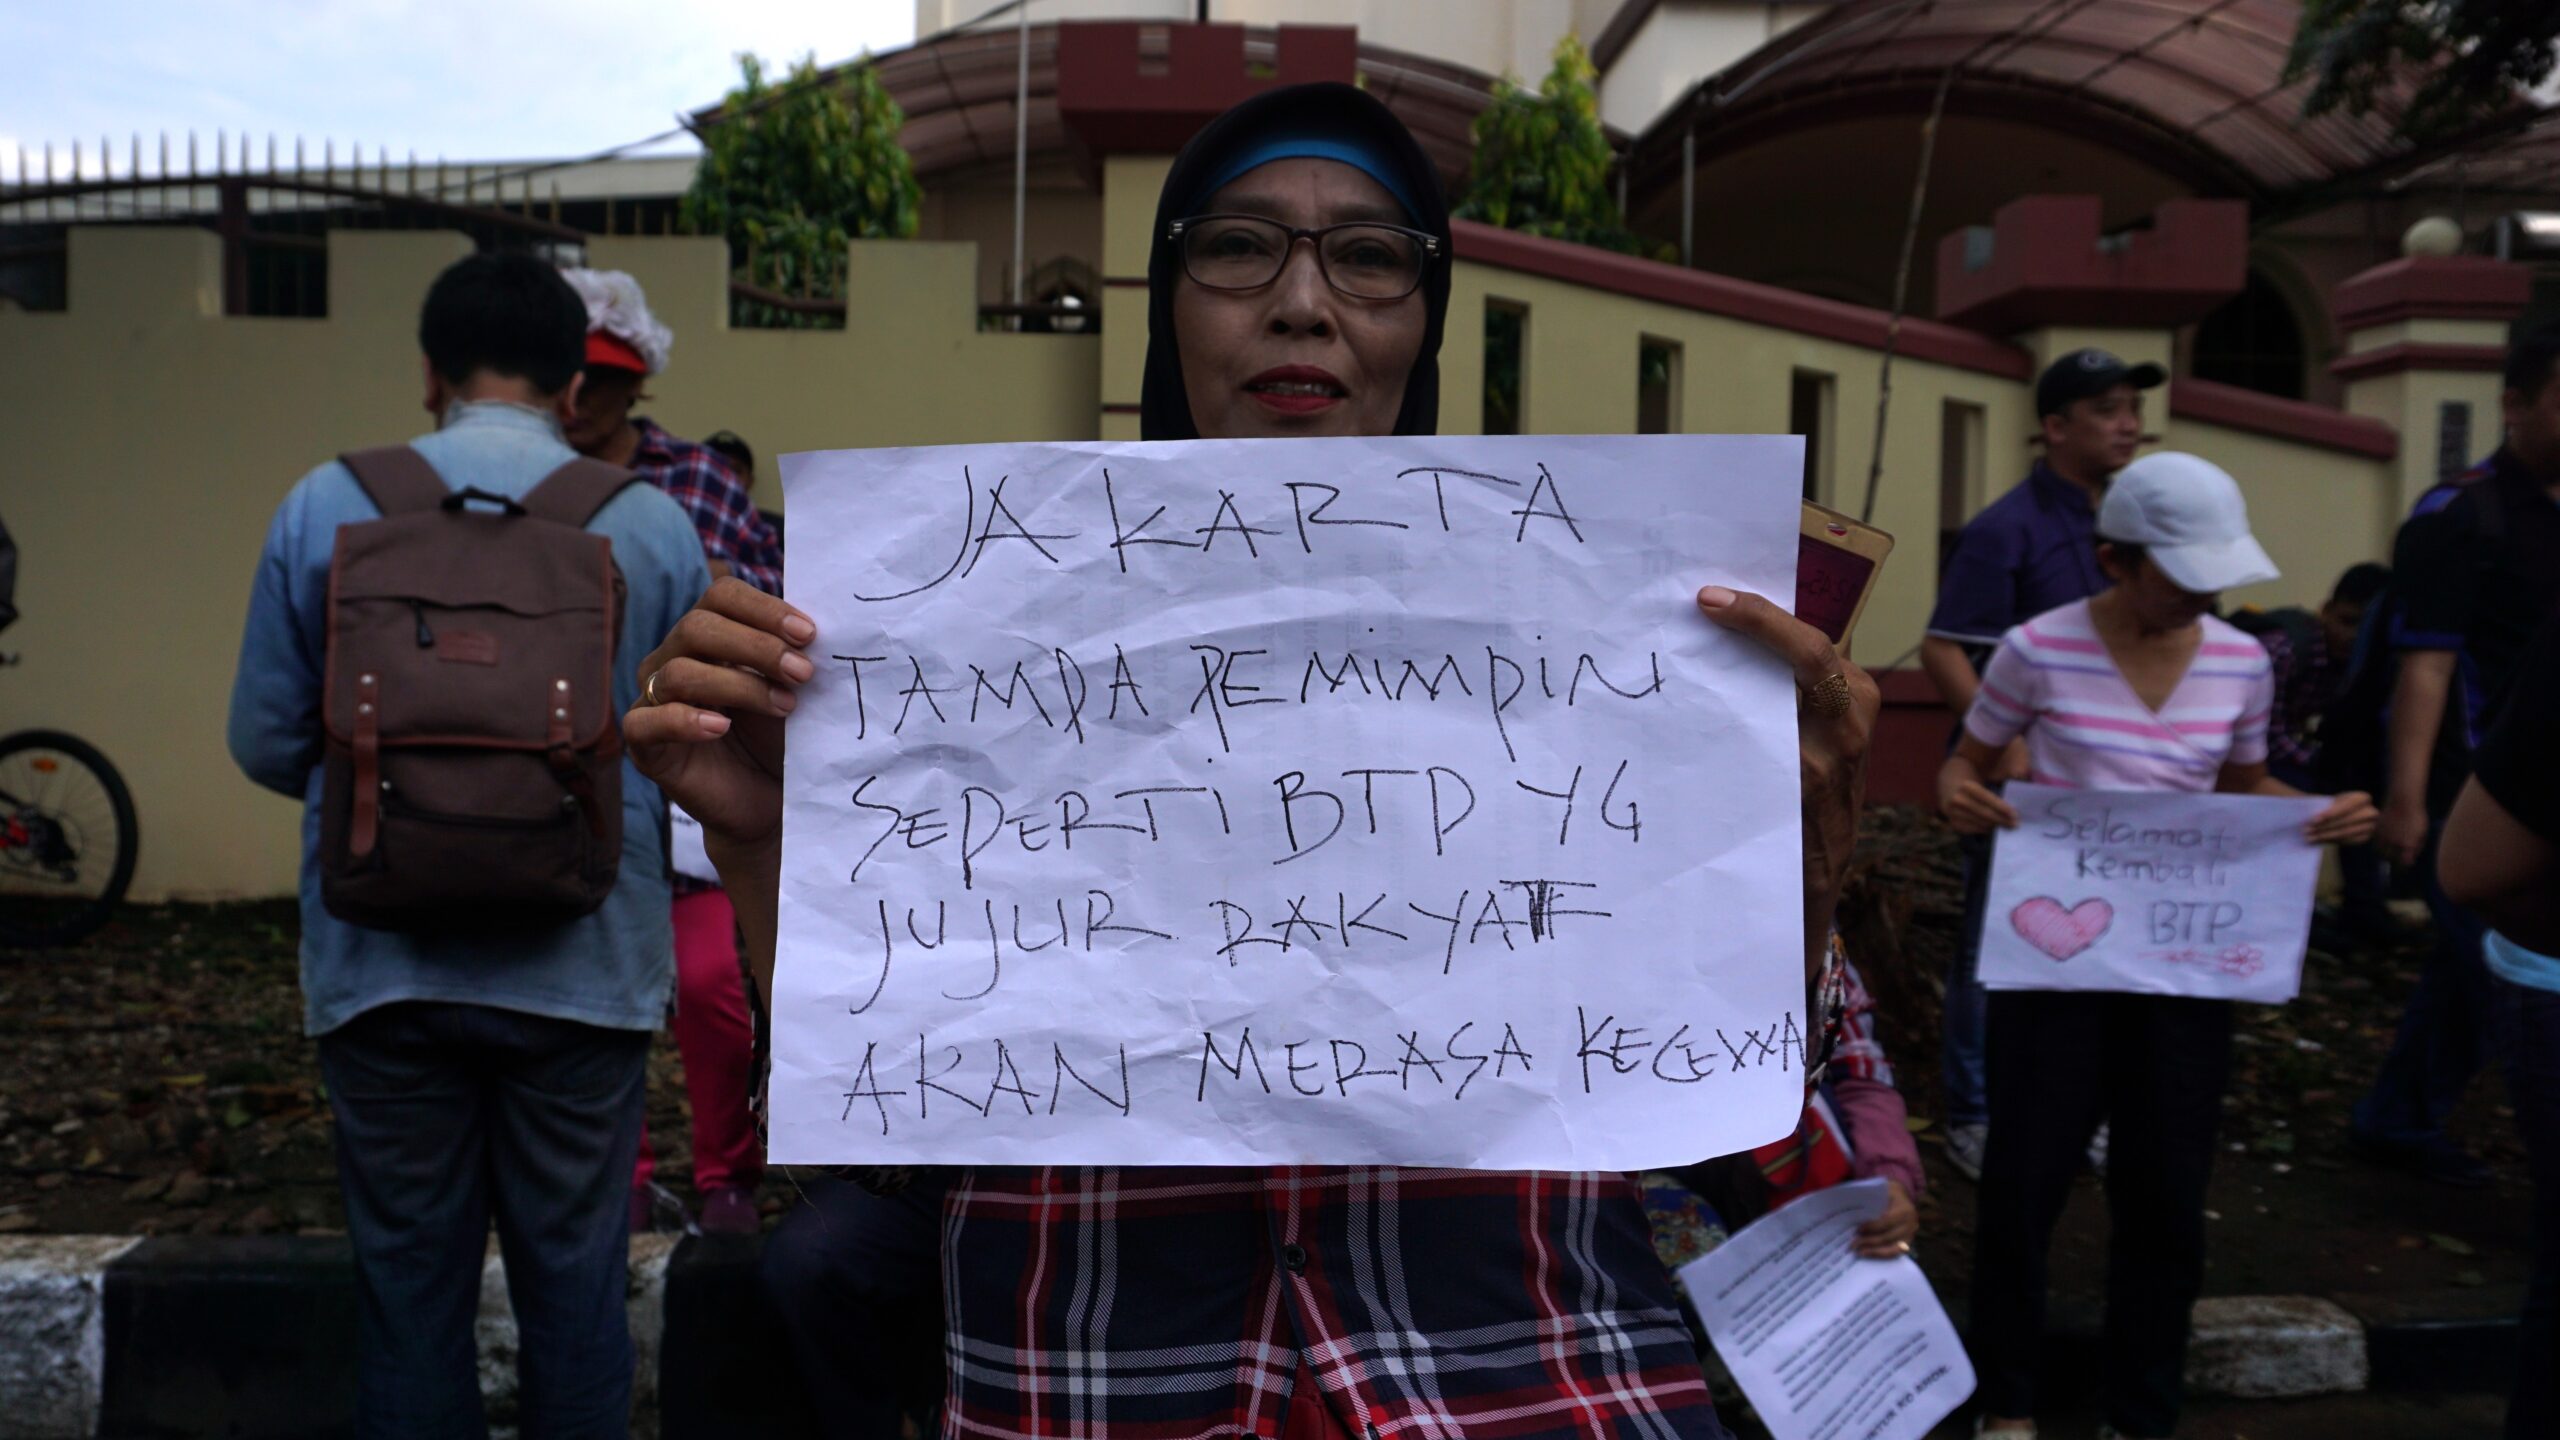 JAKARTA
TAMPA PEMIMPIN
SEPERTi BTP YG
JUJUR RAKYAT
AKAN MERASA KECEWA
Selamat
Kembali
BTP